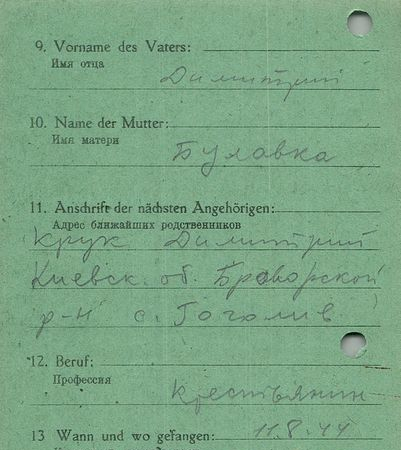 9. Vorname des Vaters:
Имя отца
Димитрий
10. Name der Mutter:
Имя матери
Булавка
11. Anschrift der nächsten Angehörigen:
Адрес ближайших родственников
Крук Димитрий
Киевск. об. Броворской
р-н с. Гоголив
12. Beruf:
Профессия
Крестьянин
13 Wann und wo gefangen: 11.8.44